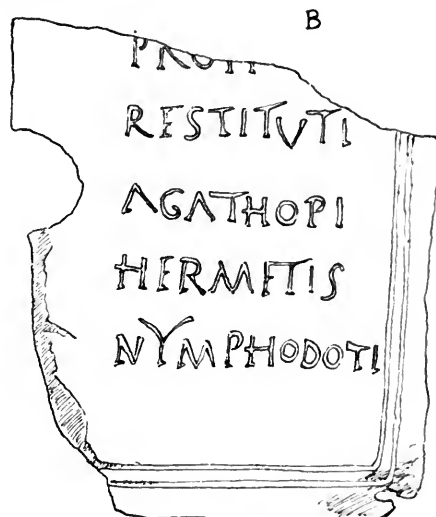 B
RESTITVTI
AGATHOPI
HERMETIS
NYMPHODOTI